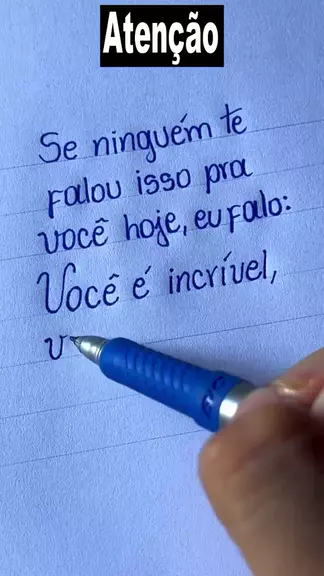 Atenção
Se ninguém te
falou isso pra
você hoje, eu falo:
Você é incrível,
v